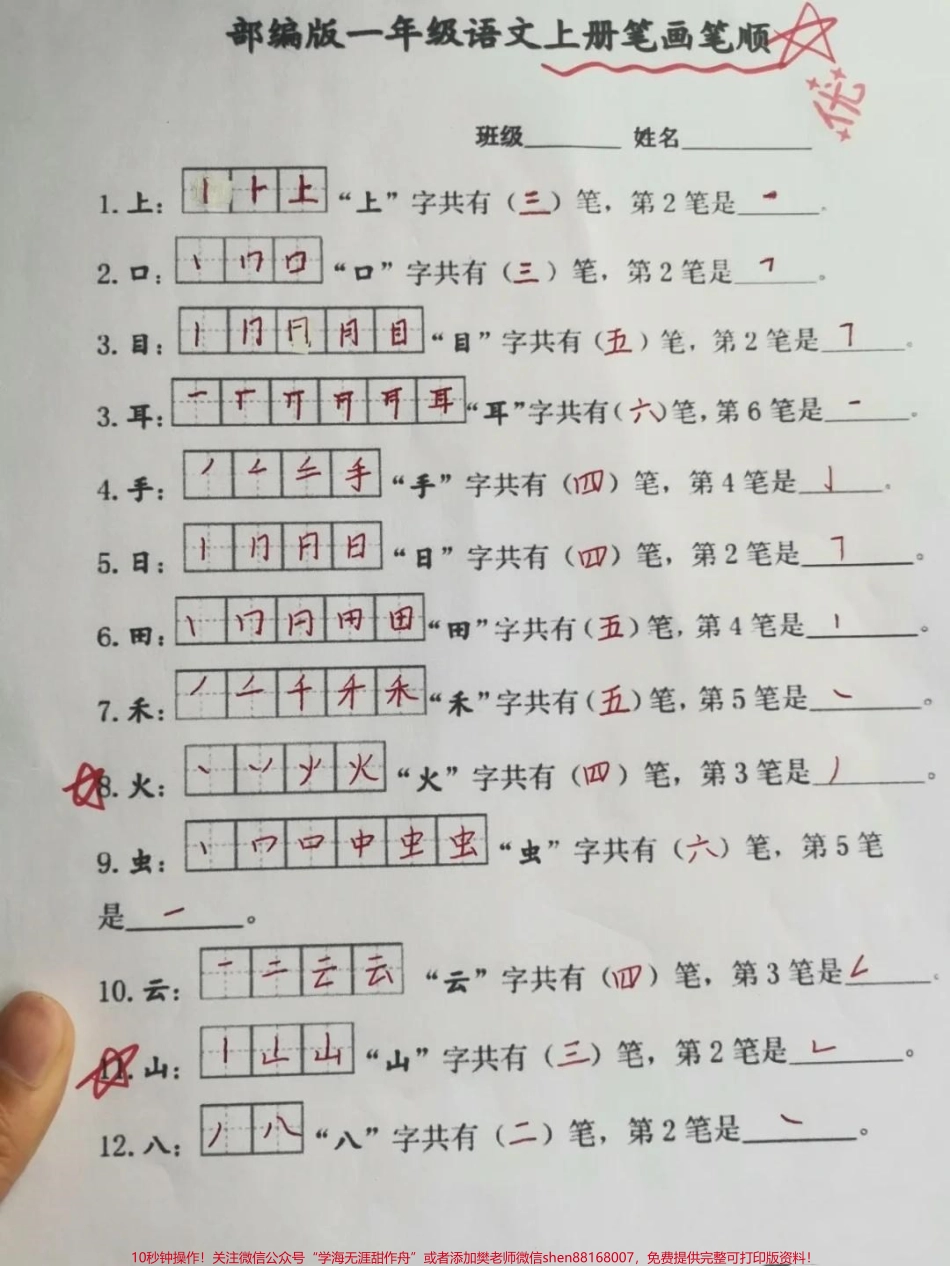 部编版一年级语文上册笔画笔顺
优
班级______ 姓名________
1.上： 丨 ⺊ 上 “上”字共有（三）笔，第2笔是 一 。
2.口： 丨 冂 口 “口”字共有（三）笔，第2笔是 𠃍 。
3.目： 丨 冂 月 目 “目”字共有（五）笔，第2笔是 𠃍 。
3.耳： 一 丅 耳 “耳”字共有（六）笔，第6笔是 一 。
4.手： 丿 二 三 手 “手”字共有（四）笔，第4笔是 亅 。
5.日： 丨 冂 日 “日”字共有（四）笔，第2笔是 𠃍 。
6.田： 丨 冂 田 “田”字共有（五）笔，第4笔是 丨 。
7.禾： 丿 二 千 禾 “禾”字共有（五）笔，第5笔是 ㇏ 。
8.火： 丶 丷 火 “火”字共有（四）笔，第3笔是 丿 。
9.虫： 丨 冂 口 中 虫 “虫”字共有（六）笔，第5笔
是 一 。
10.云： 一 二 云 “云”字共有（四）笔，第3笔是 𠃋 。
11.山： 丨 山 “山”字共有（三）笔，第2笔是 𠃊 。
12.八： 丿 八 “八”字共有（二）笔，第2笔是 ㇏ 。
10秒钟操作！关注微信公众号“学海无涯甜作舟”或者添加樊老师微信shen88168007，免费提供完整可打印版资料！